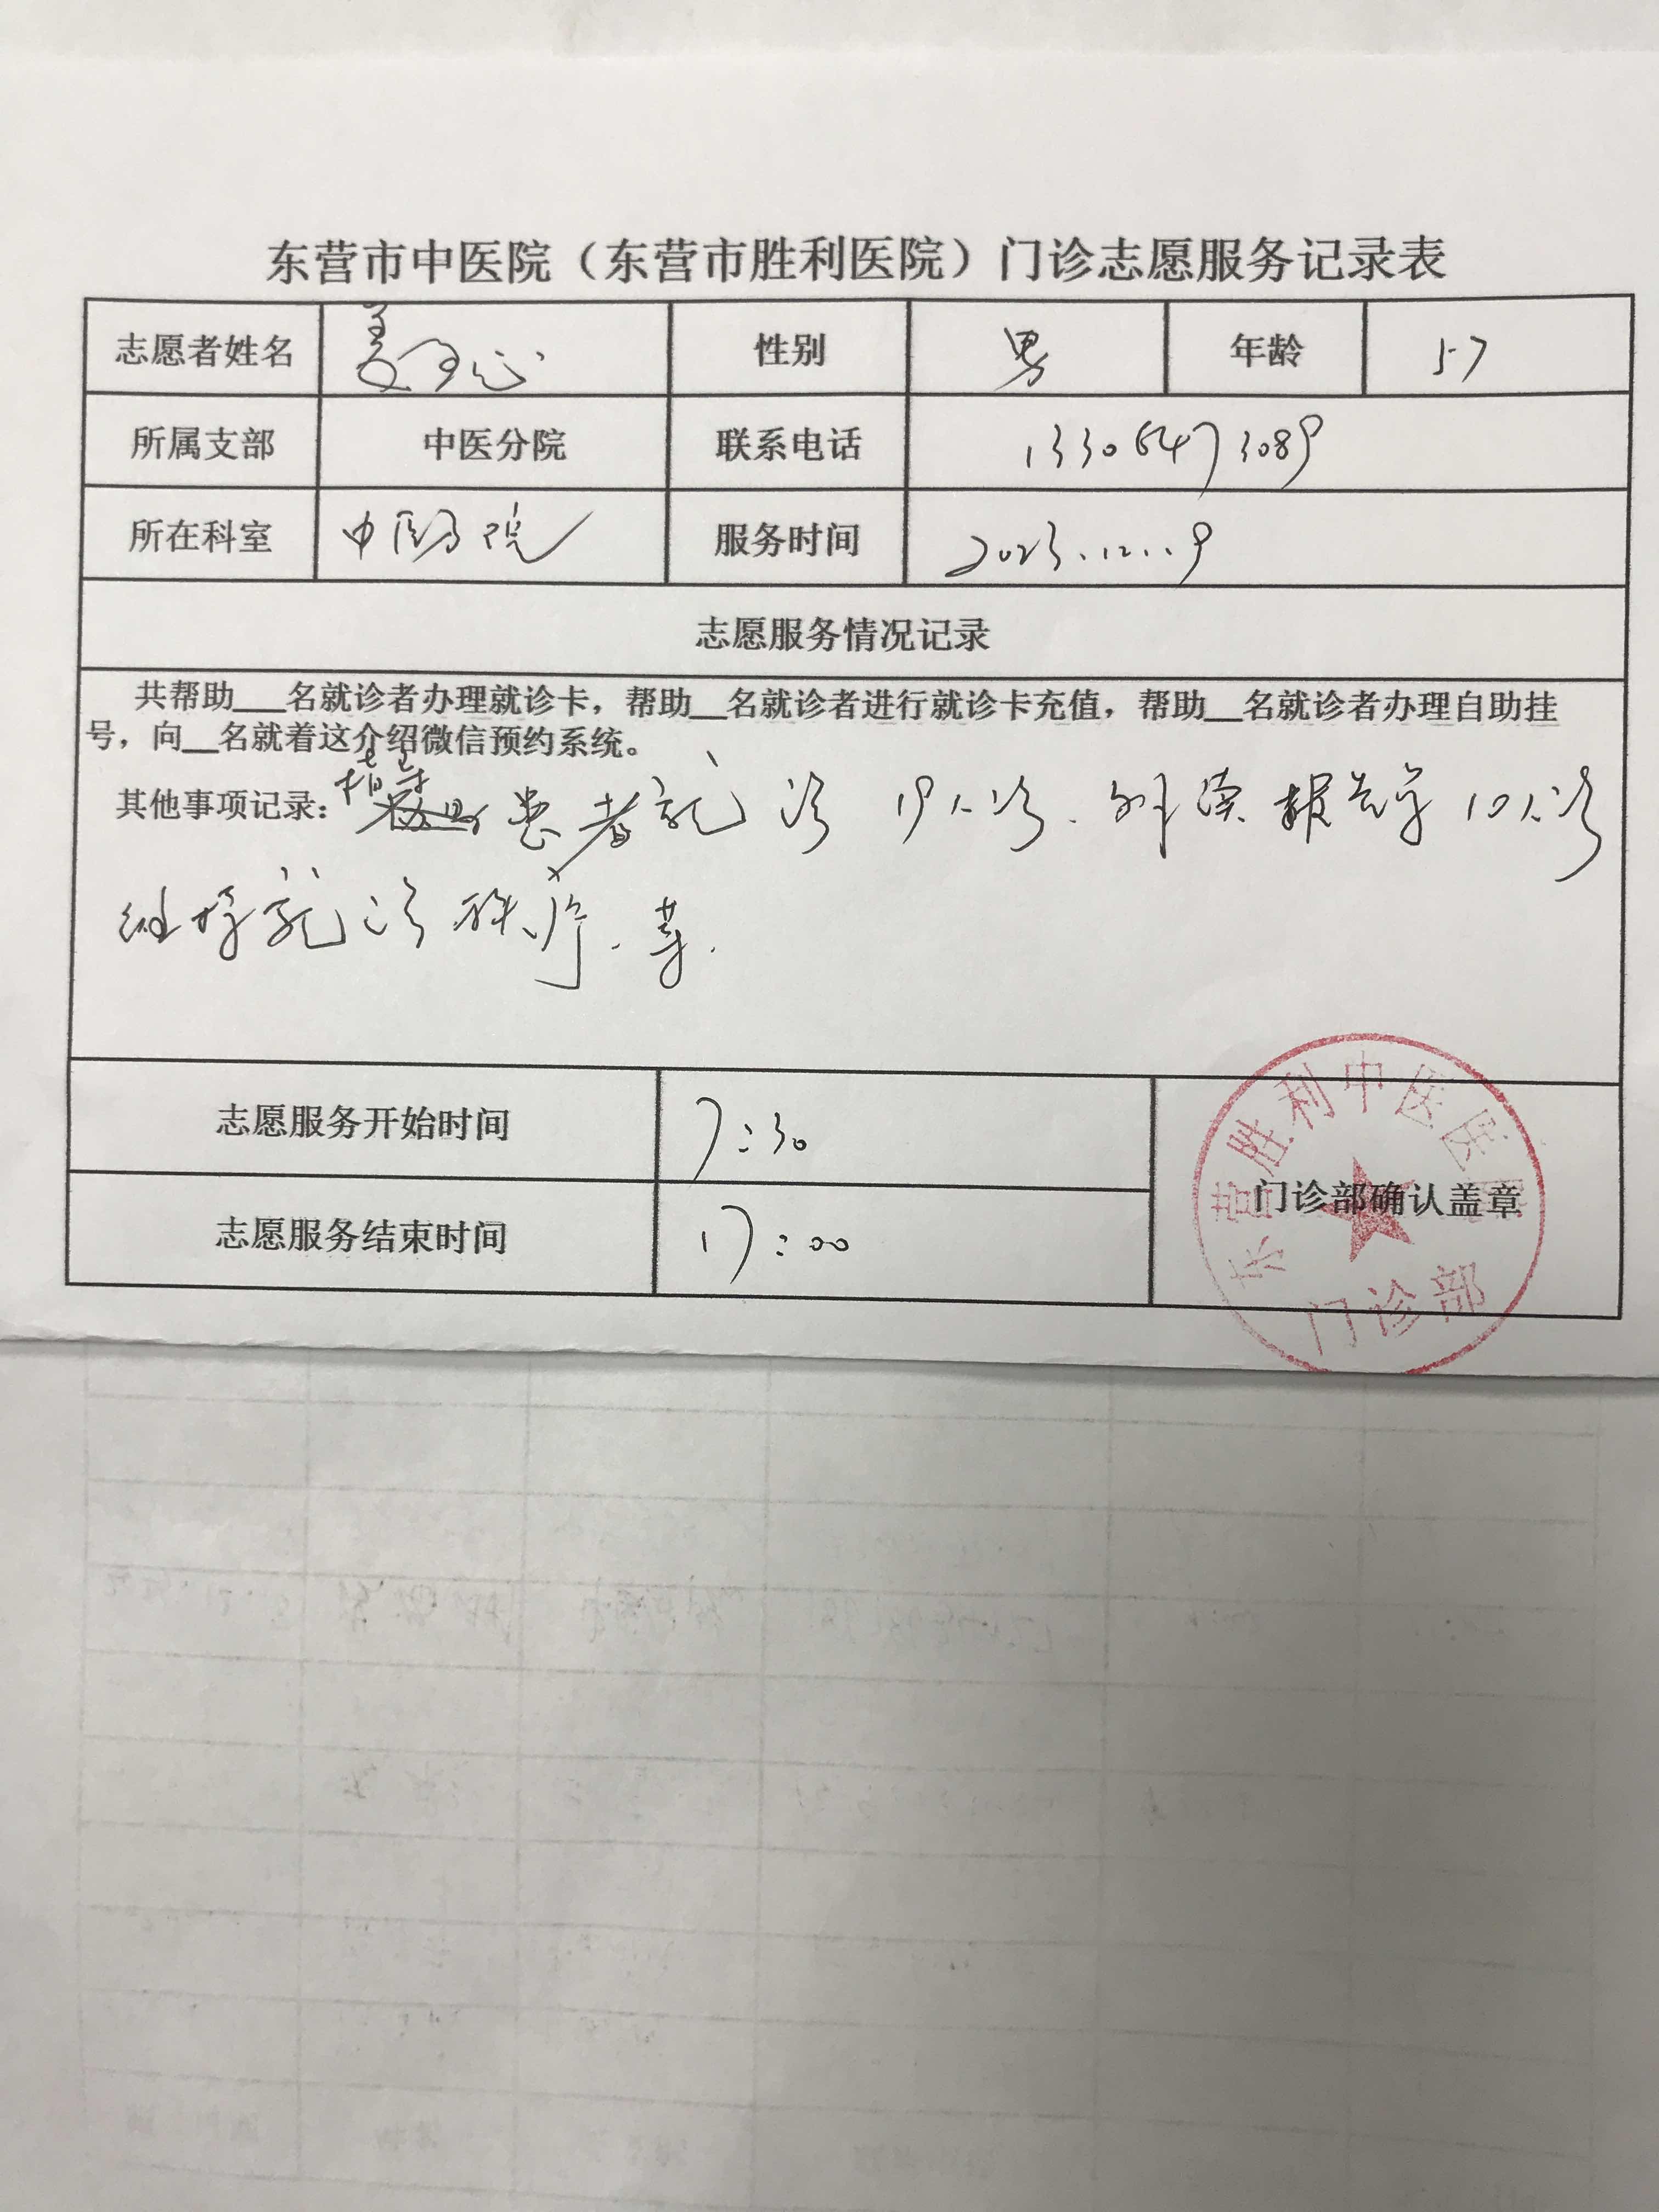 东营市中医院（东营市胜利医院）门诊志愿服务记录表
志愿者姓名 性别 男 年龄 57
所属支部 中医分院 联系电话 13306473089
所在科室 中医分院 服务时间 2023.12.19
志愿服务情况记录
共帮助___名就诊者办理就诊卡，帮助__名就诊者进行就诊卡充值，帮助__名就诊者办理自助挂
号，向__名就着这介绍微信预约系统。
其他事项记录：指导患者就诊19人次.解读报告单10人次
维持就诊秩序.等.
志愿服务开始时间 7:30
志愿服务结束时间 17:00
门诊部确认盖章
东营胜利中医医院
门诊部